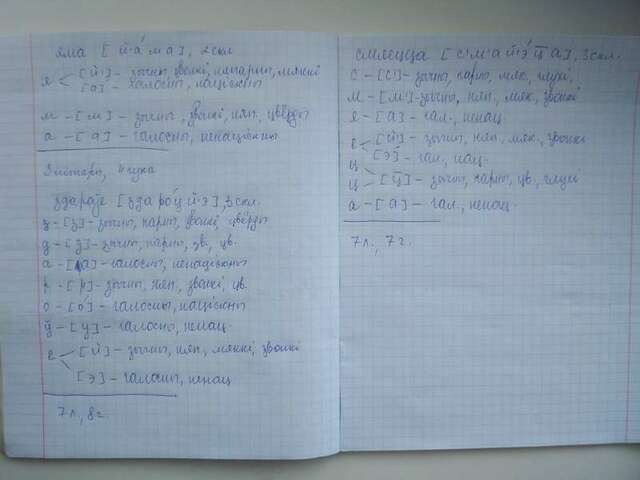 яма [й'áма], 2 скл.
я [й'] – зычны, звонкі, няпарны, мяккі
[а] – галосны, націскны
м – [м] – зычны, звонкі, няп., цвёрды
а – [а] – галосны, ненаціскны
3 літары, 4 гука
здароўе [здарóўй'э], 3 скл.
з – [з] – зычны, парны, звонкі, цвёрды
д – [д] – зычны, парны, зв., цв.
а – [а] – галосны, ненаціскны
р – [р] – зычны, няп., звонкі, цв.
о – [ó] – галосны, націскны
ў – [ў] – галосны, ненац.
е [й'] – зычны, няп., мяккі, звонкі
[э] – галосны, ненац.
7 л., 8 г.
смяецца [с'м'ай'э́ц̄а], 3 скл.
с – [с'] – зычны, парны, мяк., глухі
м – [м'] – зычны, няп., мяк., звонкі
я – [а] – гал., ненац.
е [й'] – зычны, няп., мяк., звонкі
[э́] – гал., нац.
ц
ц [ц̄] – зычны, парны, цв., глухі
а – [а] – гал., ненац.
7 л., 7 г.